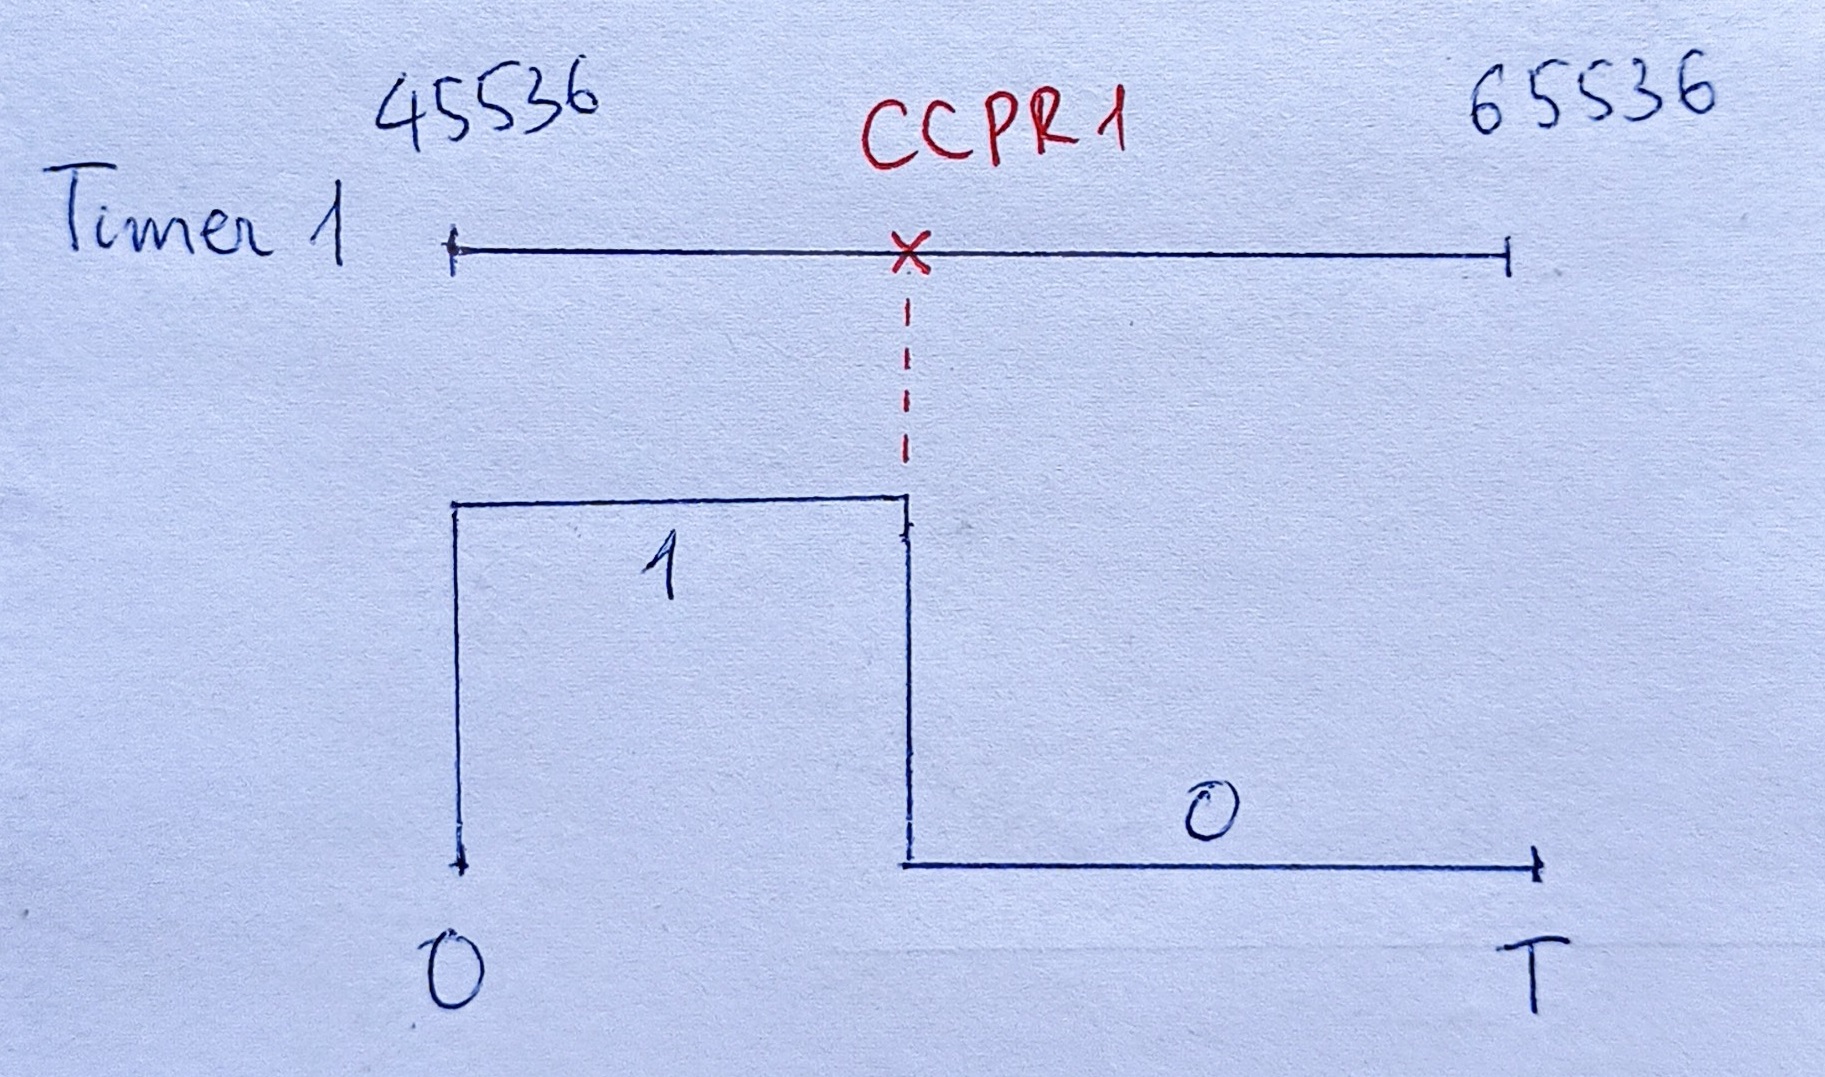 45536
CCPR1
65536
Timer 1
1
0
0
T